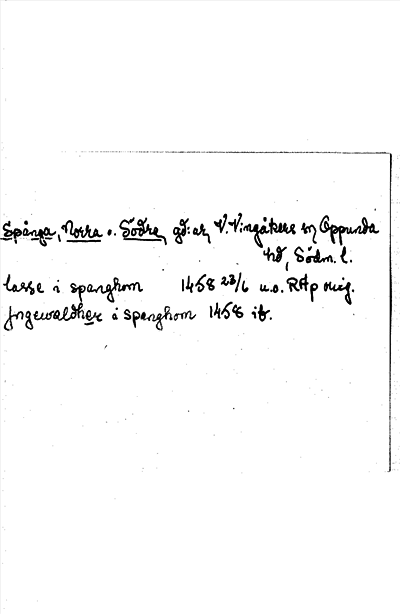 Spånga, Norra o. Södre, gd:ar, V. Vingåkers sn Oppunda
hd, Södm. l.
lasse i spanghom 1458 23/6 u.o. RAp orig.
Jngewaldher i spenghom 1458 ib.